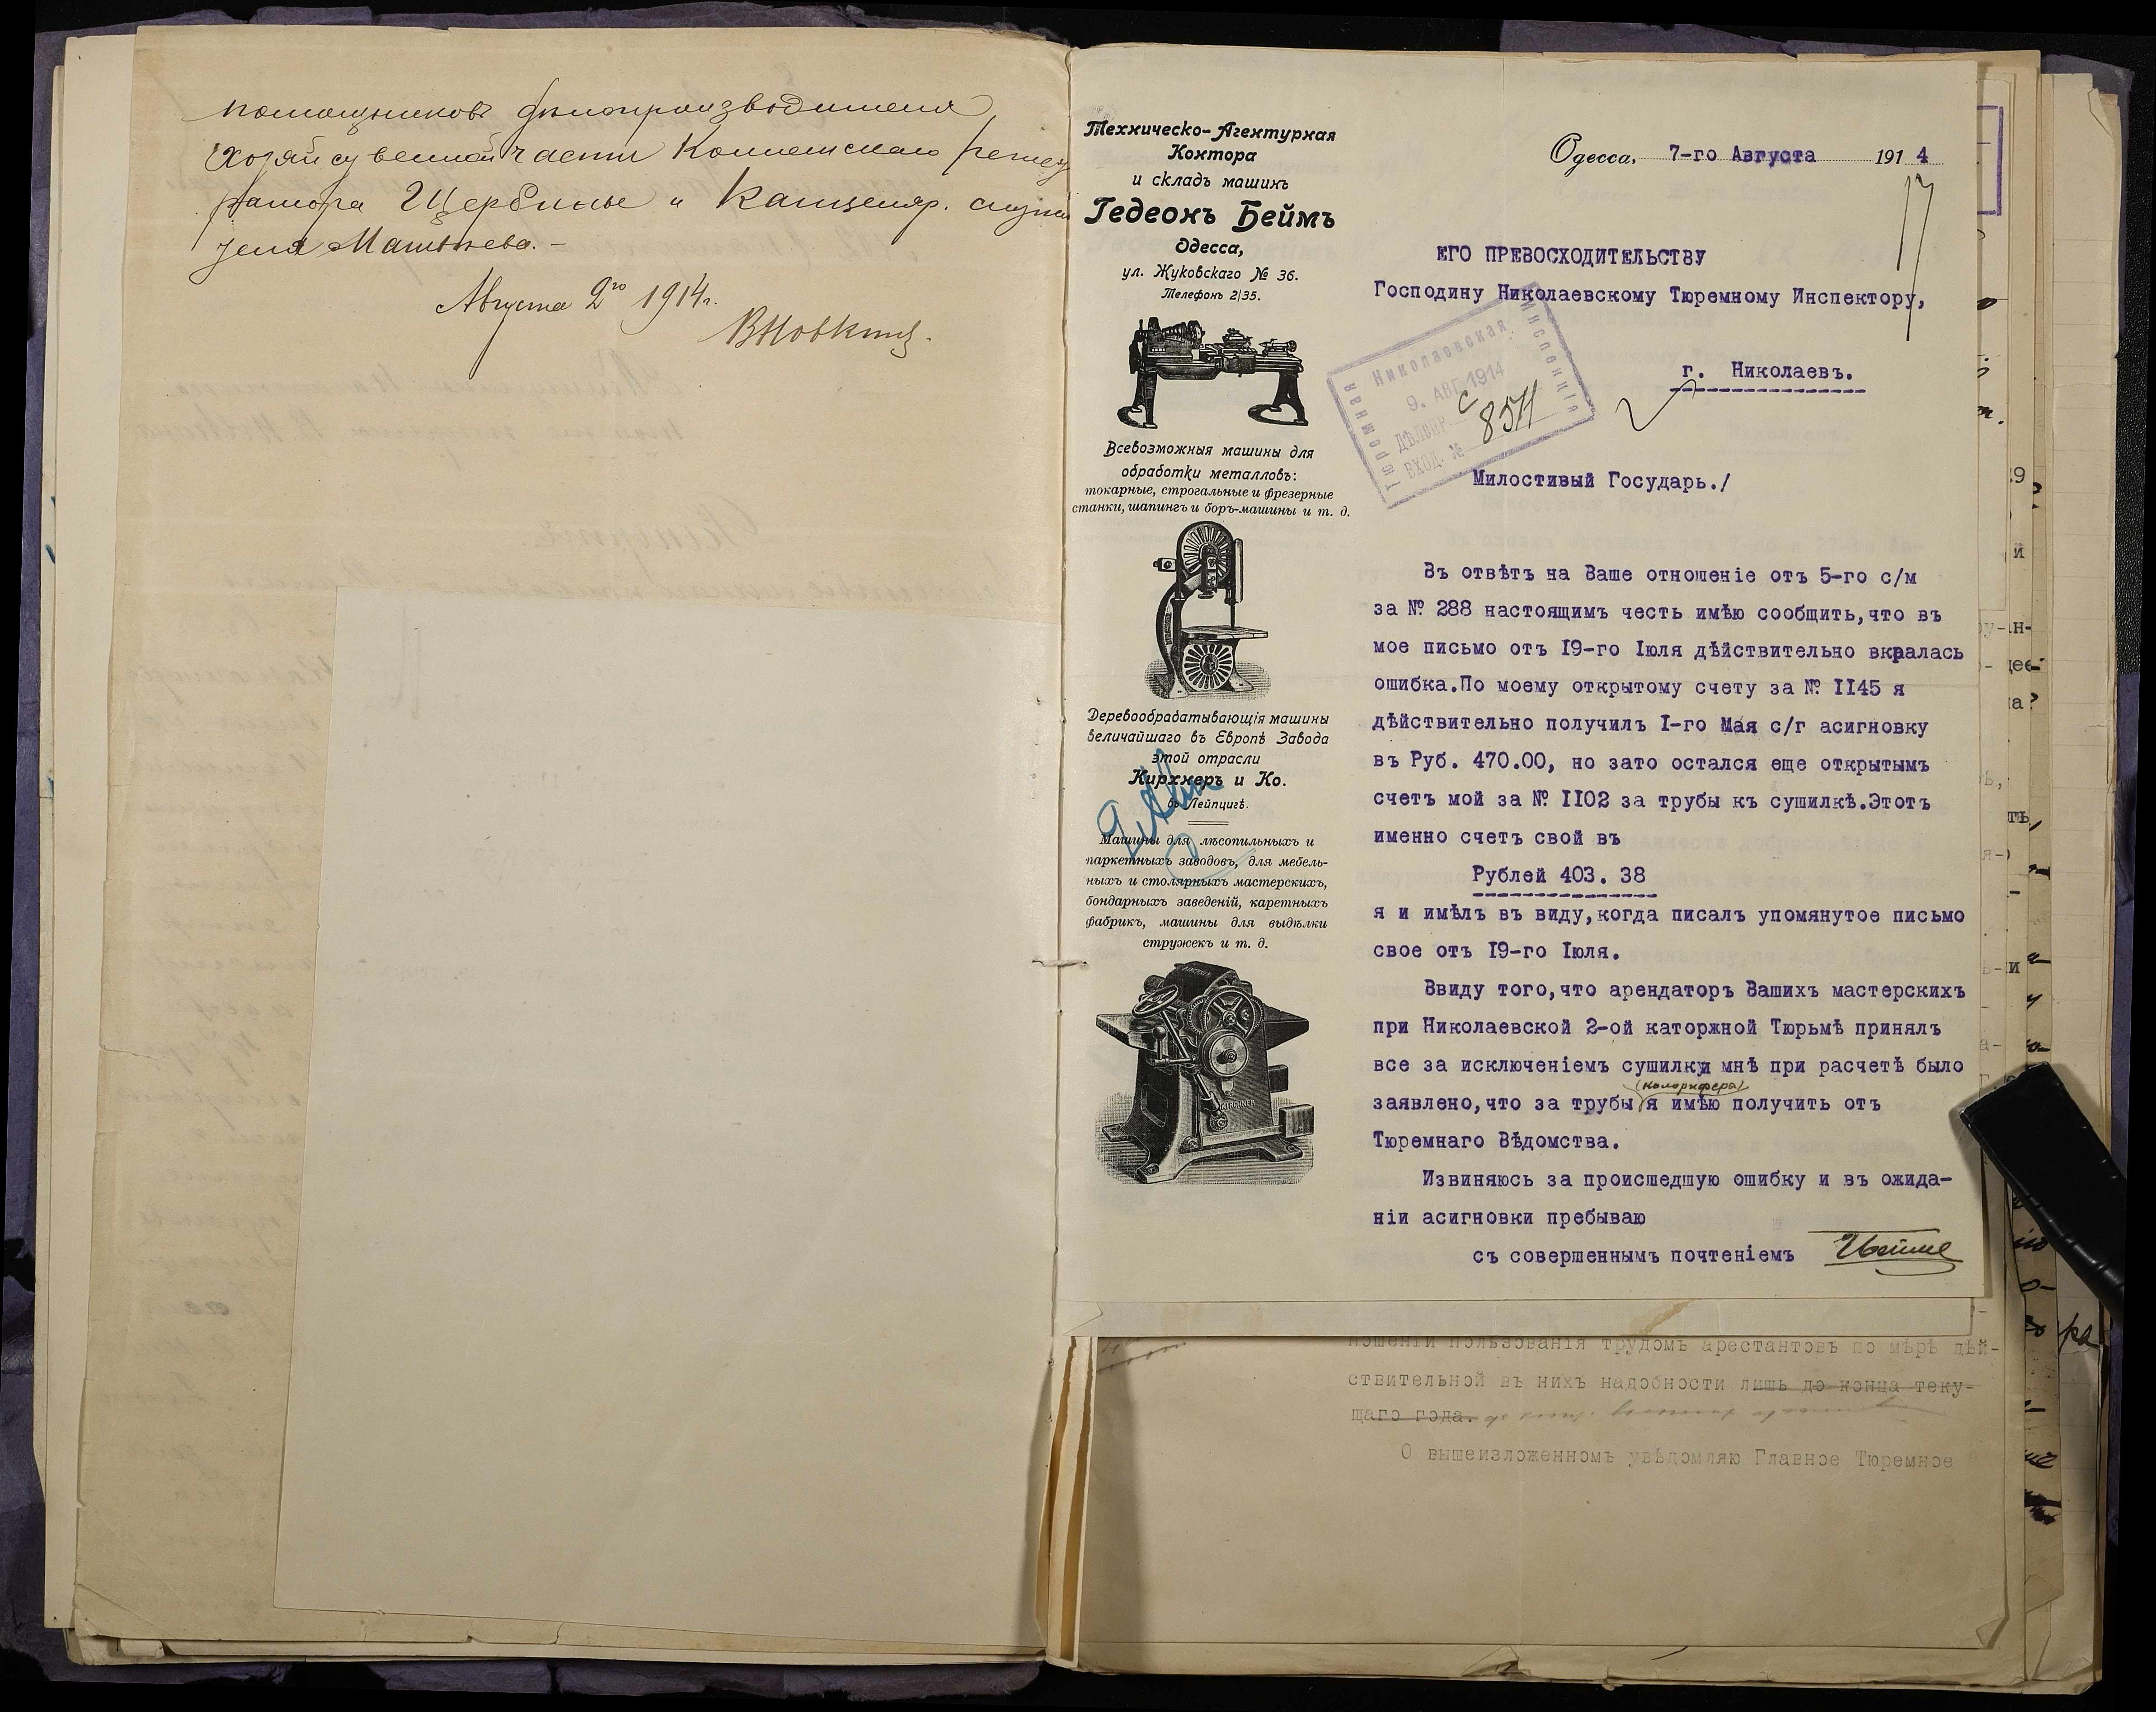 помощниковъ дѣлопроизводителя
хозяйственной части Коллежскаго регист
ратора Щербины и Канцеляр. служи
теля Матвѣева. –
Августа 2го 1914г.
Техническо-Агентурная
Контора
и складъ машинъ
Гедеонъ Беймъ
Одесса,
ул. Жуковскаго № 36.
Телефонъ 2|35.
Всевозможныя машины для
обработки металловъ:
токарные, строгальные и фрезерные
станки, шапингъ и боръ-машины и т. д.
Деревообрабатывающія машины
величайшаго въ Европѣ Завода
этой отрасли
Кирхнеръ и Ко.
въ Лейпцигѣ.
Машины для лѣсопильныхъ и
паркетныхъ заводовъ, для мебель-
ныхъ и столярныхъ мастерскихъ,
бондарныхъ заведеній, каретныхъ
фабрикъ, машины для выдѣлки
стружекъ и т. д.
KIRCHNER
Одесса, 7-го Августа 1914
ЕГО ПРЕВОСХОДИТЕЛЬСТВУ
Господину Николаевскому Тюремному Инспектору,
г. Николаевъ.
Николаевская
Тюремная
Инспекція
9. АВГ 1914
ДѢЛОПР. С
ВХОД. № 8511
Милостивый Государь./
Въ отвѣтъ на Ваше отношеніе отъ 5-го с/м
за № 288 настоящимъ честь имѣю сообщить,что въ
мое письмо отъ I9-го Іюля дѣйствительно вкралась
ошибка.По моему открытому счету за № II45 я
дѣйствительно получилъ I-го Мая с/г асигновку
въ Руб. 470.00, но зато остался еще открытымъ
счетъ мой за № II02 за трубы къ сушилкѣ.Этотъ
именно счетъ свой въ
Рублей 403. 38
я и имѣлъ въ виду,когда писалъ упомянутое письмо
свое отъ I9-го Іюля.
Ввиду того,что арендаторъ Вашихъ мастерскихъ
при Николаевской 2-ой каторжной Тюрьмѣ принялъ
все за исключеніемъ сушилки мнѣ при расчетѣ было
(калорифера)
заявлено,что за трубы я имѣю получить отъ
Тюремнаго Вѣдомства.
Извиняюсь за происшедшую ошибку и въ ожида-
ніи асигновки пребываю
съ совершеннымъ почтеніемъ
ношеніи пользованія трудомъ арестантовъ по мѣрѣ дѣй-
ствительной въ нихъ надобности лишь до конца теку-
щаго года.
О вышеизложенномъ увѣдомляю Главное Тюремное